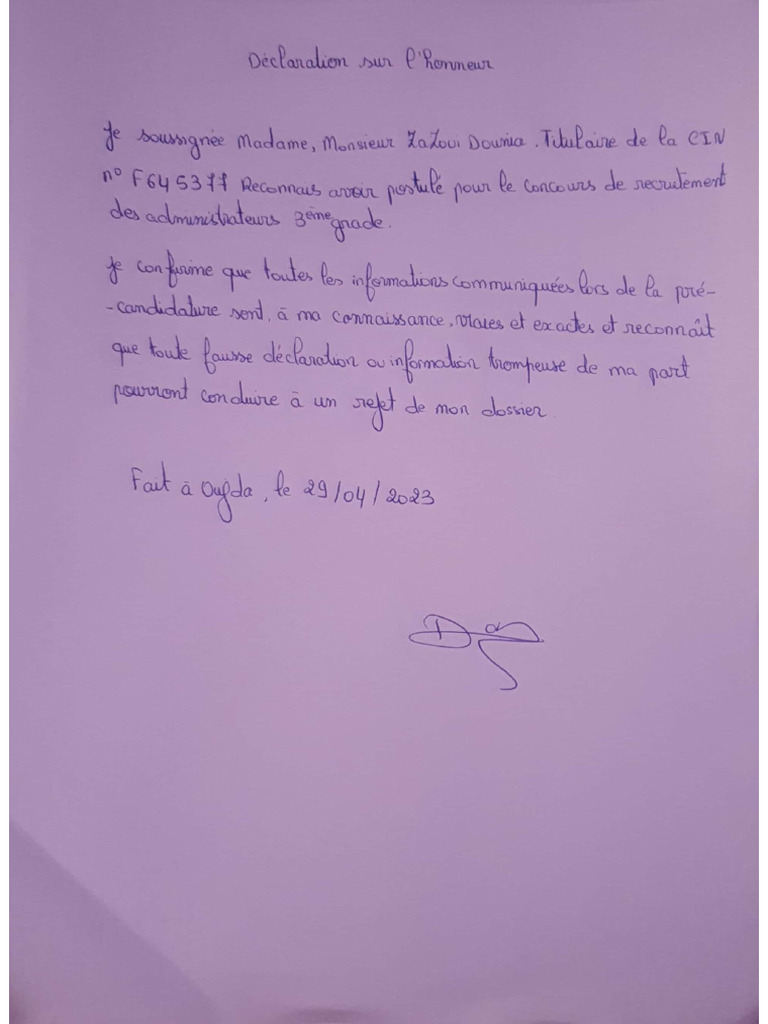 Déclaration sur l'honneur
Je soussignée Madame, Monsieur ZaZoui Dounia. Titulaire de la CIN
n° F645377 Reconnais avoir postulé pour le concours de recrutement
des administrateurs 3ème grade.
Je confirme que toutes les informations communiquées lors de la pré-
-candidature sont, à ma connaissance, vraies et exactes et reconnaît
que toute fausse déclaration ou information trompeuse de ma part
pourront conduire à un rejet de mon dossier.
Fait à Oujda, le 29/04/2023